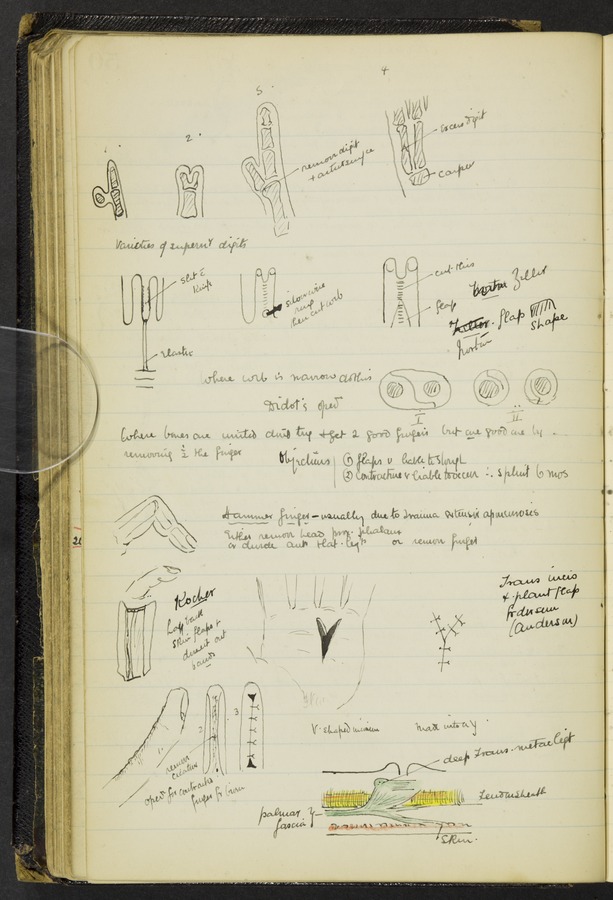 1.
2.
3.
4
remove digit
+ artic surface
excess digit
carpus
Varieties of supernʸ digits
slit c̄
knife
elastic
silver wire
ring
then cut web
cut this
flap
Zeller
flap
shape
Norton
where web is narrow do this
Didot's operⁿ
I
II
Where bones are united divide try + get 2 good fingers but are good one by
removing ½ the finger
Objections
① flaps v liable to slough
② Contracture v liable to occur ∴ splint 6 mos
Hammer finger – usually due to trauma extensor aponeurosis
Either remove head prox. phalanx
or divide ant. + lat. ligᵗˢ or remove finger
Kocher
Lay back
skin flaps +
dissect out
bands
Trans incis
+ plant flap
from dorsum
(Anderson)
1.
2
3
remove
cicatrix
operⁿ for contracted
finger from burn
V. shaped incision
made into a Y
deep trans. metac ligt
Tendon sheath
palmar
fascia
Skin.